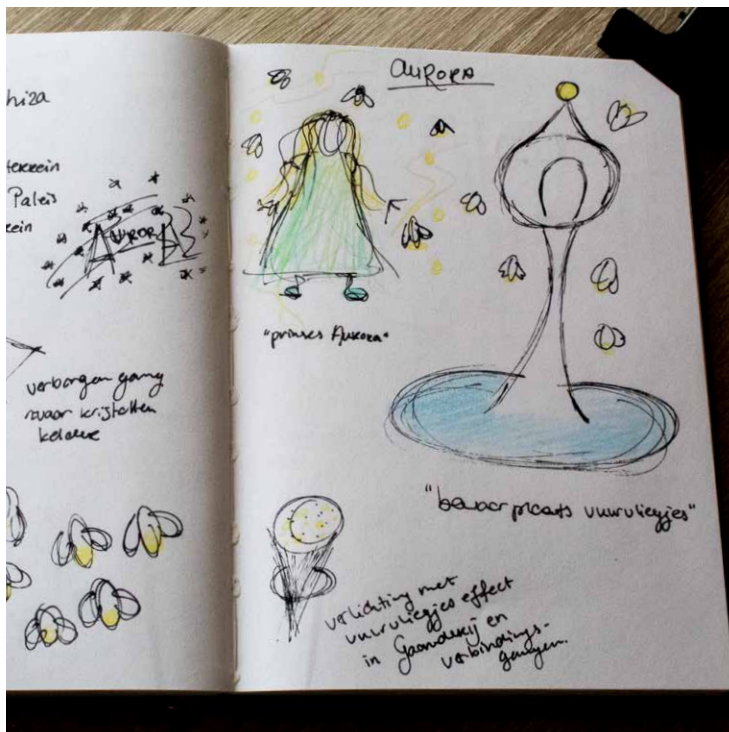 Paleis
AURORA
verborgen gang
naar kristallen
kelder
AURORA
"prinses Aurora"
"bewaarplaats vuurvliegjes"
verlichting met
vuurvliegjes effect
in Gaanderij en
verbindings-
gangen.